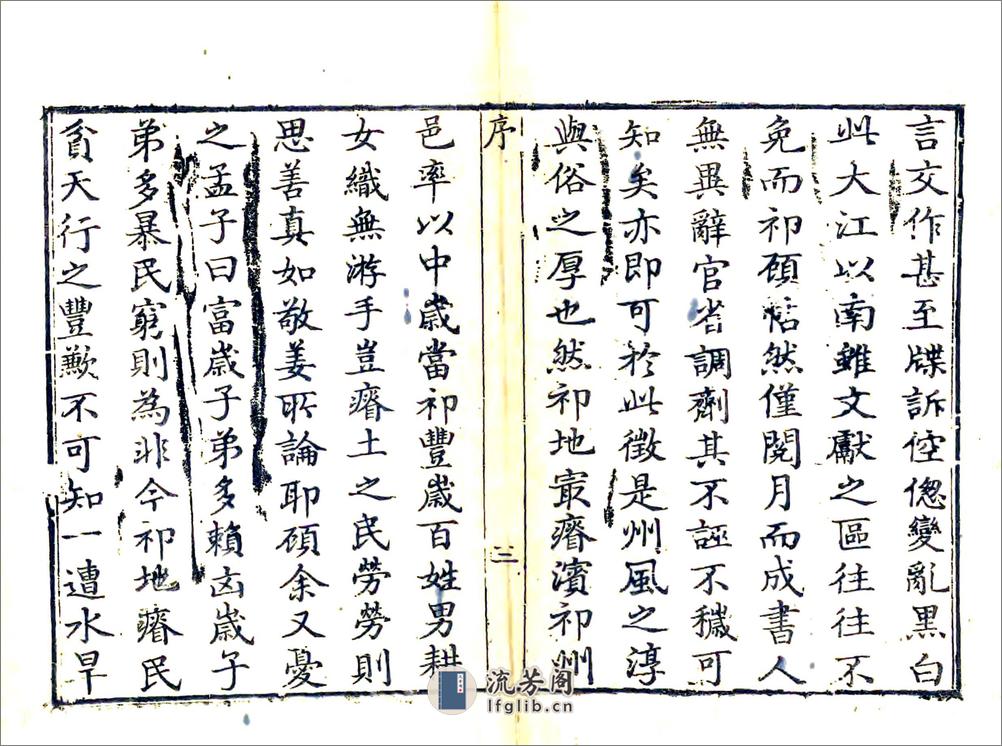 言交作甚至牒訴倥偬變亂黑白
此大江以南雖文獻之區徃徃不
免而祁頋帖然僅閱月而成書人
無異辭官省調劑其不誣不穢可
知矣亦即可於此徵是州風之淳
與俗之厚也然祁地最瘠濱祁州
序
三
邑率以中歲當祁豐歲百姓男耕
女織無游手豈瘠土之民勞勞則
思善真如敬姜所論耶頋余又憂
之孟子曰富歲子弟多賴凶歲子
弟多暴民窮則為非今祁地瘠民
貧天行之豐歉不可知一遭水旱
流芳阁
lfglib.cn